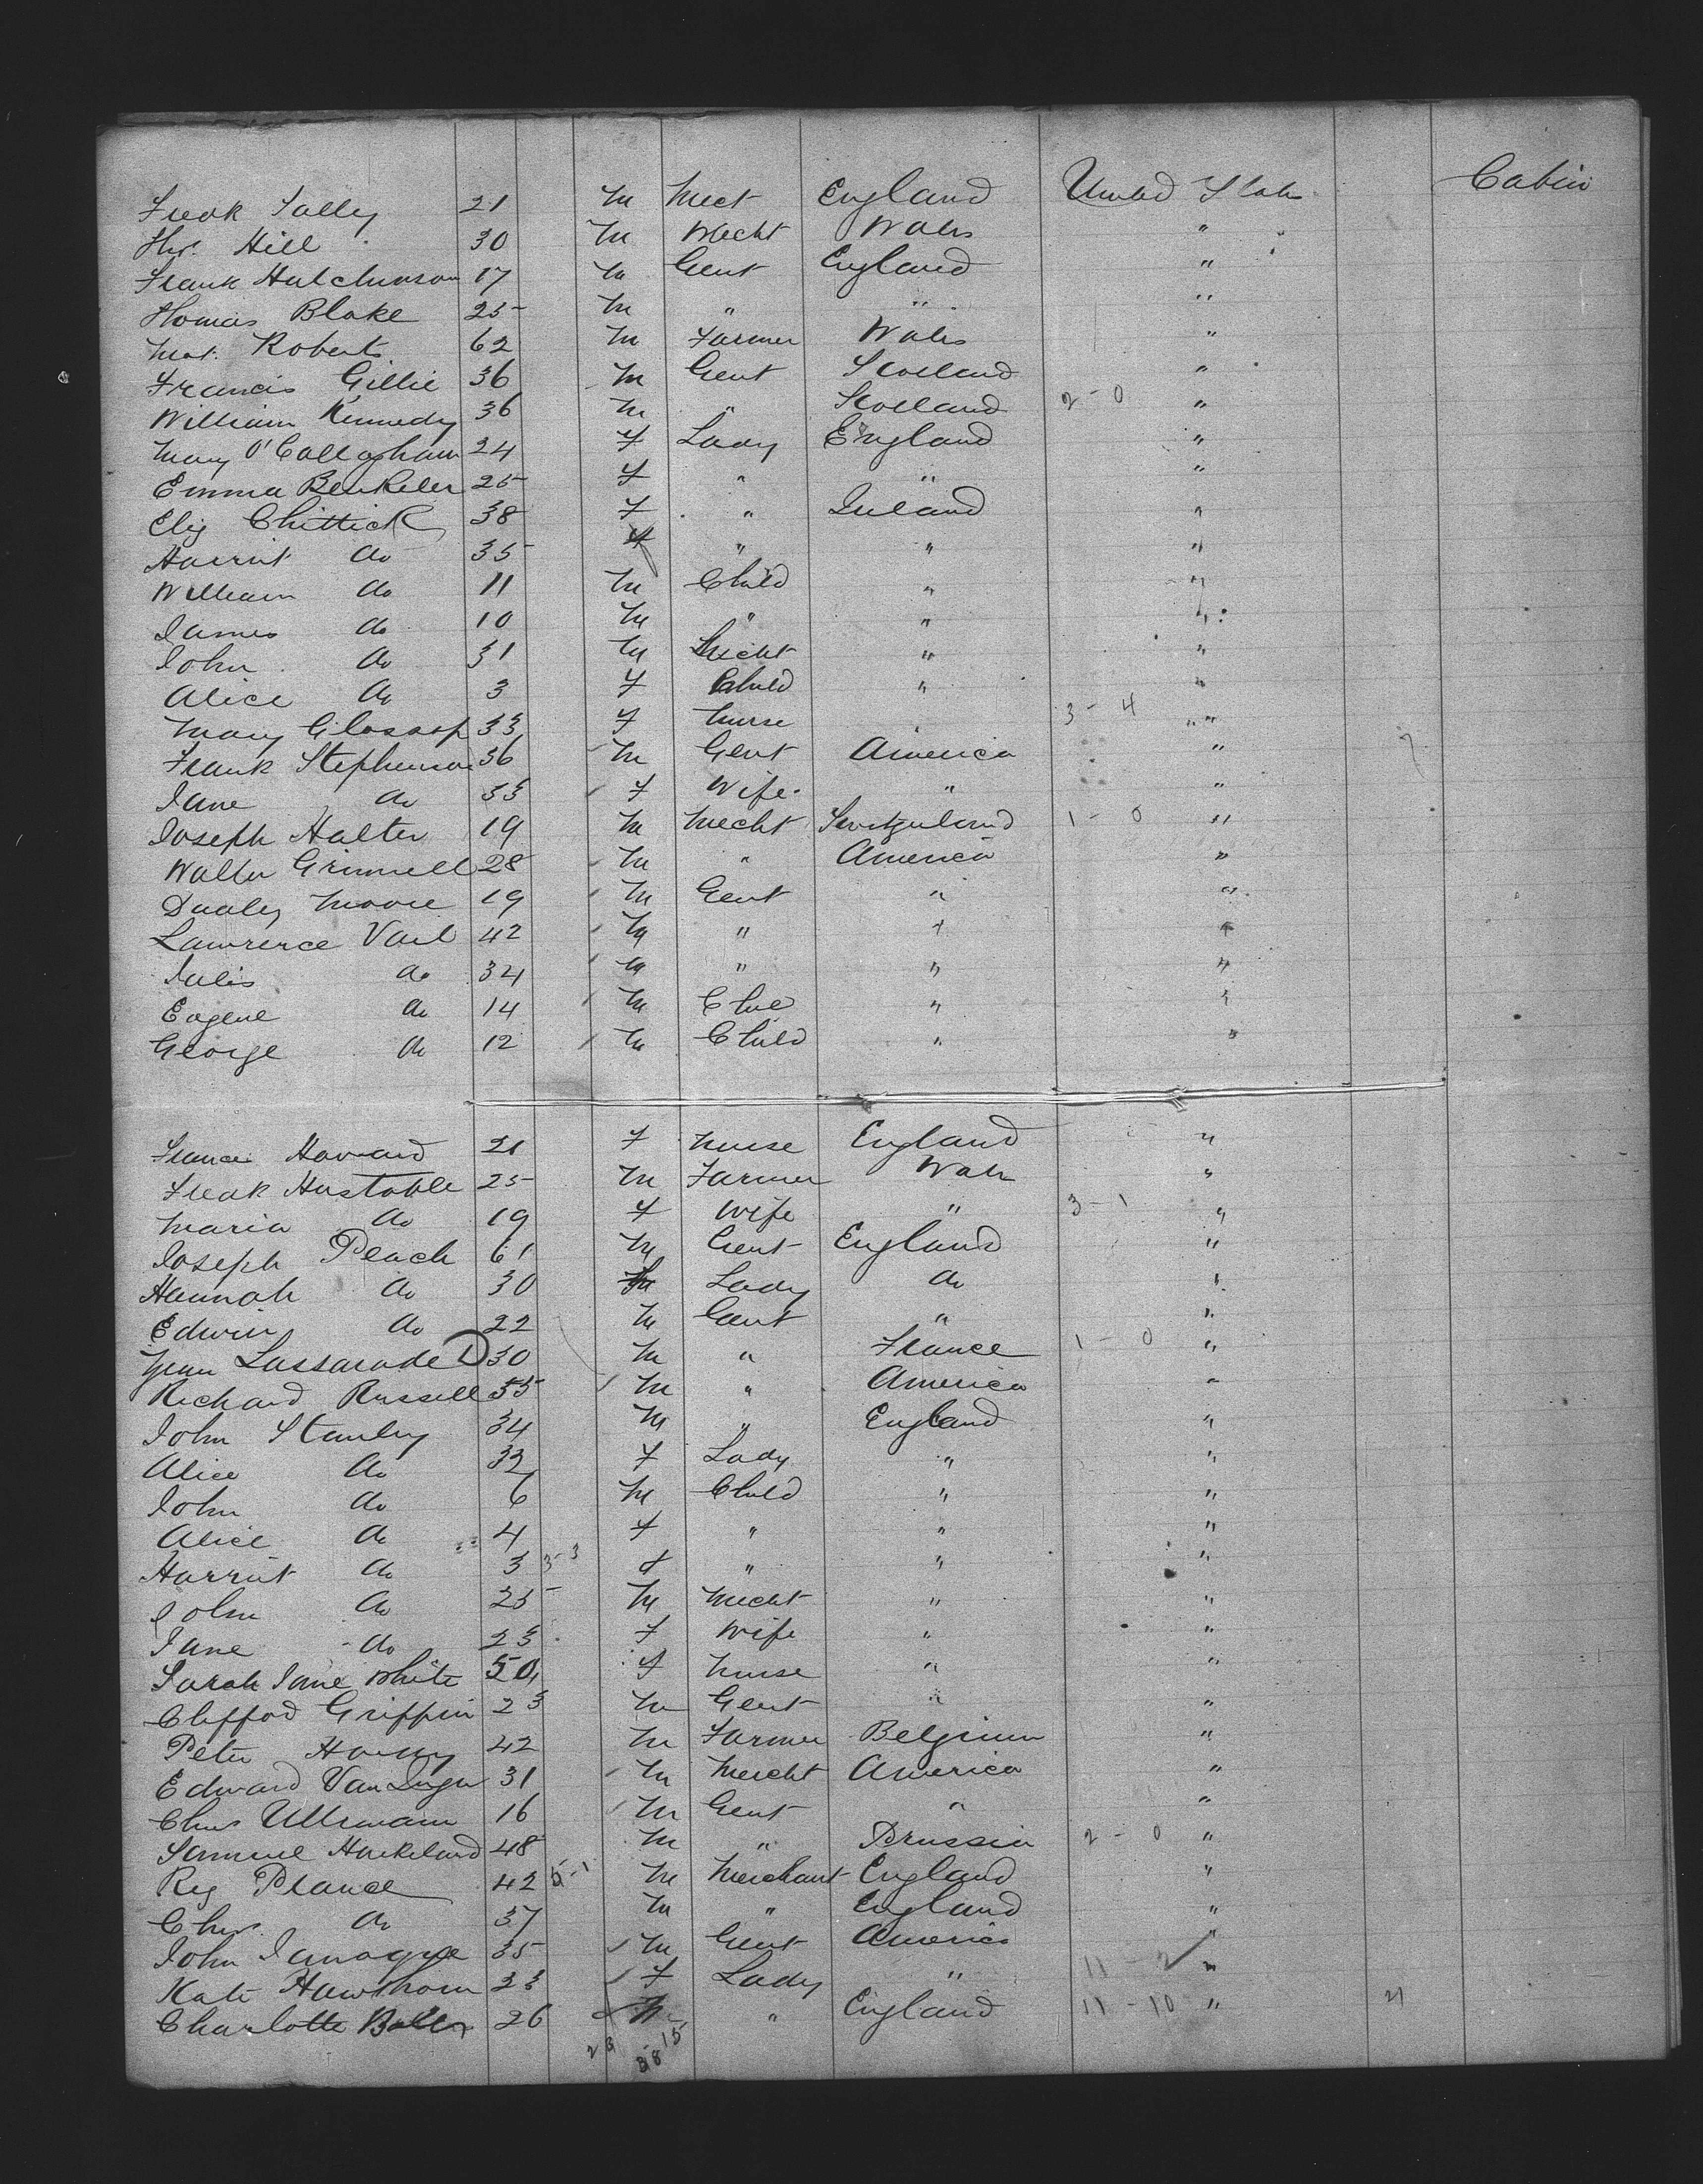 Fredk Salley 21 M Mect England United States Cabin
Thos. Hill 30 M Mecht Wales "
Frank Hutchinson 17 M Gent England "
Thomas Blake 25 M " " "
Mat. Roberts 62 M Farmer Wales "
Francis Gillie 36 M Gent Scotland "
William Kennedy 36 M " Scotland 2 - 0 "
Mary O'Callagham 24 F Lady England "
Emma 25 F " " "
Eliz Chittick 38 F " Ireland "
Harriet do 35 F " " "
William do 11 M Child " "
James do 10 M " " "
John do 31 M Mecht " "
Alice do 3 F Child " "
Mary Glossop 33 F Nurse " 3 - 4 "
Frank Stephenson 36 M Gent America "
Jane do 33 F Wife " "
Joseph Halter 19 M Mecht Switzerland 1 - 0 "
Walter Grinnell 28 M " America "
Dudley Moore 19 M Gent " "
Lawrence Vail 42 M " " "
Julis do 34 M " " "
Eugene do 14 M Chil " "
George do 12 M Child " "
Frances Howard 21 F Nurse England "
Fredk Hustable 25 M Farmer Wales "
Maria do 19 F Wife " 3 - 1 "
Joseph Peach 61 M Gent England "
Hannah do 30 Lady do "
Edwin do 22 M Gent " "
Lassarade D 30 M " France 1 - 0 "
Richard Russell 55 M " America "
John Stanley 34 M " England "
Alice do 32 F Lady " "
John do 6 M Child " "
Alice do 4 F " " "
Harriet do 3 3-3 F " " "
John do 25 M Mecht " "
Jane do 23 F Wife " "
Sarah Jane White 50 F Nurse " "
Clifford Griffin 23 M Gent " "
Peter 42 M Farmer Belgium "
Edward 31 M Mercht America "
Chas Ullmann 16 M Gent " "
Samuel 48 M " Prussia 2 - 0 "
Reg Pearce 42 5-1 M Merchant England "
Chas. do 37 M " England "
John 35 M Gent America "
Kate Hawthorn 23 F Lady " 11 - 2 "
Charlotte 26 " England 11 - 10 " 21
38 15